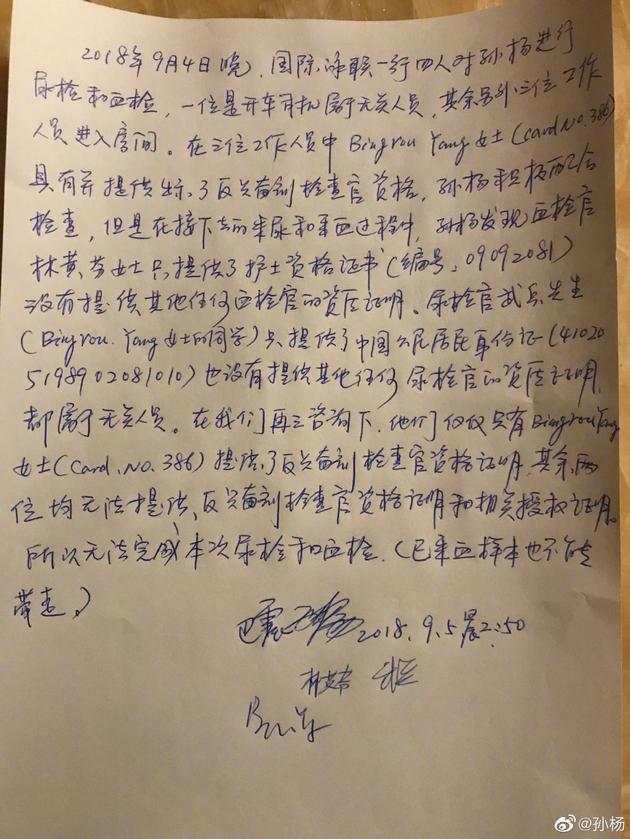 2018年9月4日晚，国际泳联一行四人对孙杨进行
尿检和血检，一位是开车司机属于无关人员，其余另外三位工作
人员进入房间。在三位工作人员中Bingrou Yang女士(card No.386)
具有并提供出示了反兴奋剂检查官资格，孙杨积极配合
检查，但是在接下去的采尿和采血过程中，孙杨发现血检官
林黄芬女士只提供了护士资格证书(编号：09092081)
没有提供其他任何血检官的资质证明。尿检官武兵先生
(Bingrou.Yang女士的同学)只提供了中国公民居民身份证(41020
5198902081010)也没有提供其他任何尿检官的资质证明，
都属于无关人员。在我们再三咨询下，他们仅仅只有Bingrou Yang
女士(Card.No.386)提供了反兴奋剂检查官资格证明，其余两
位均无法提供反兴奋剂检查官资格证明和相关授权证明。
所以无法完成本次尿检和血检.(已采血样本也不能
带走。)
2018.9.5晨2:50
@孙杨